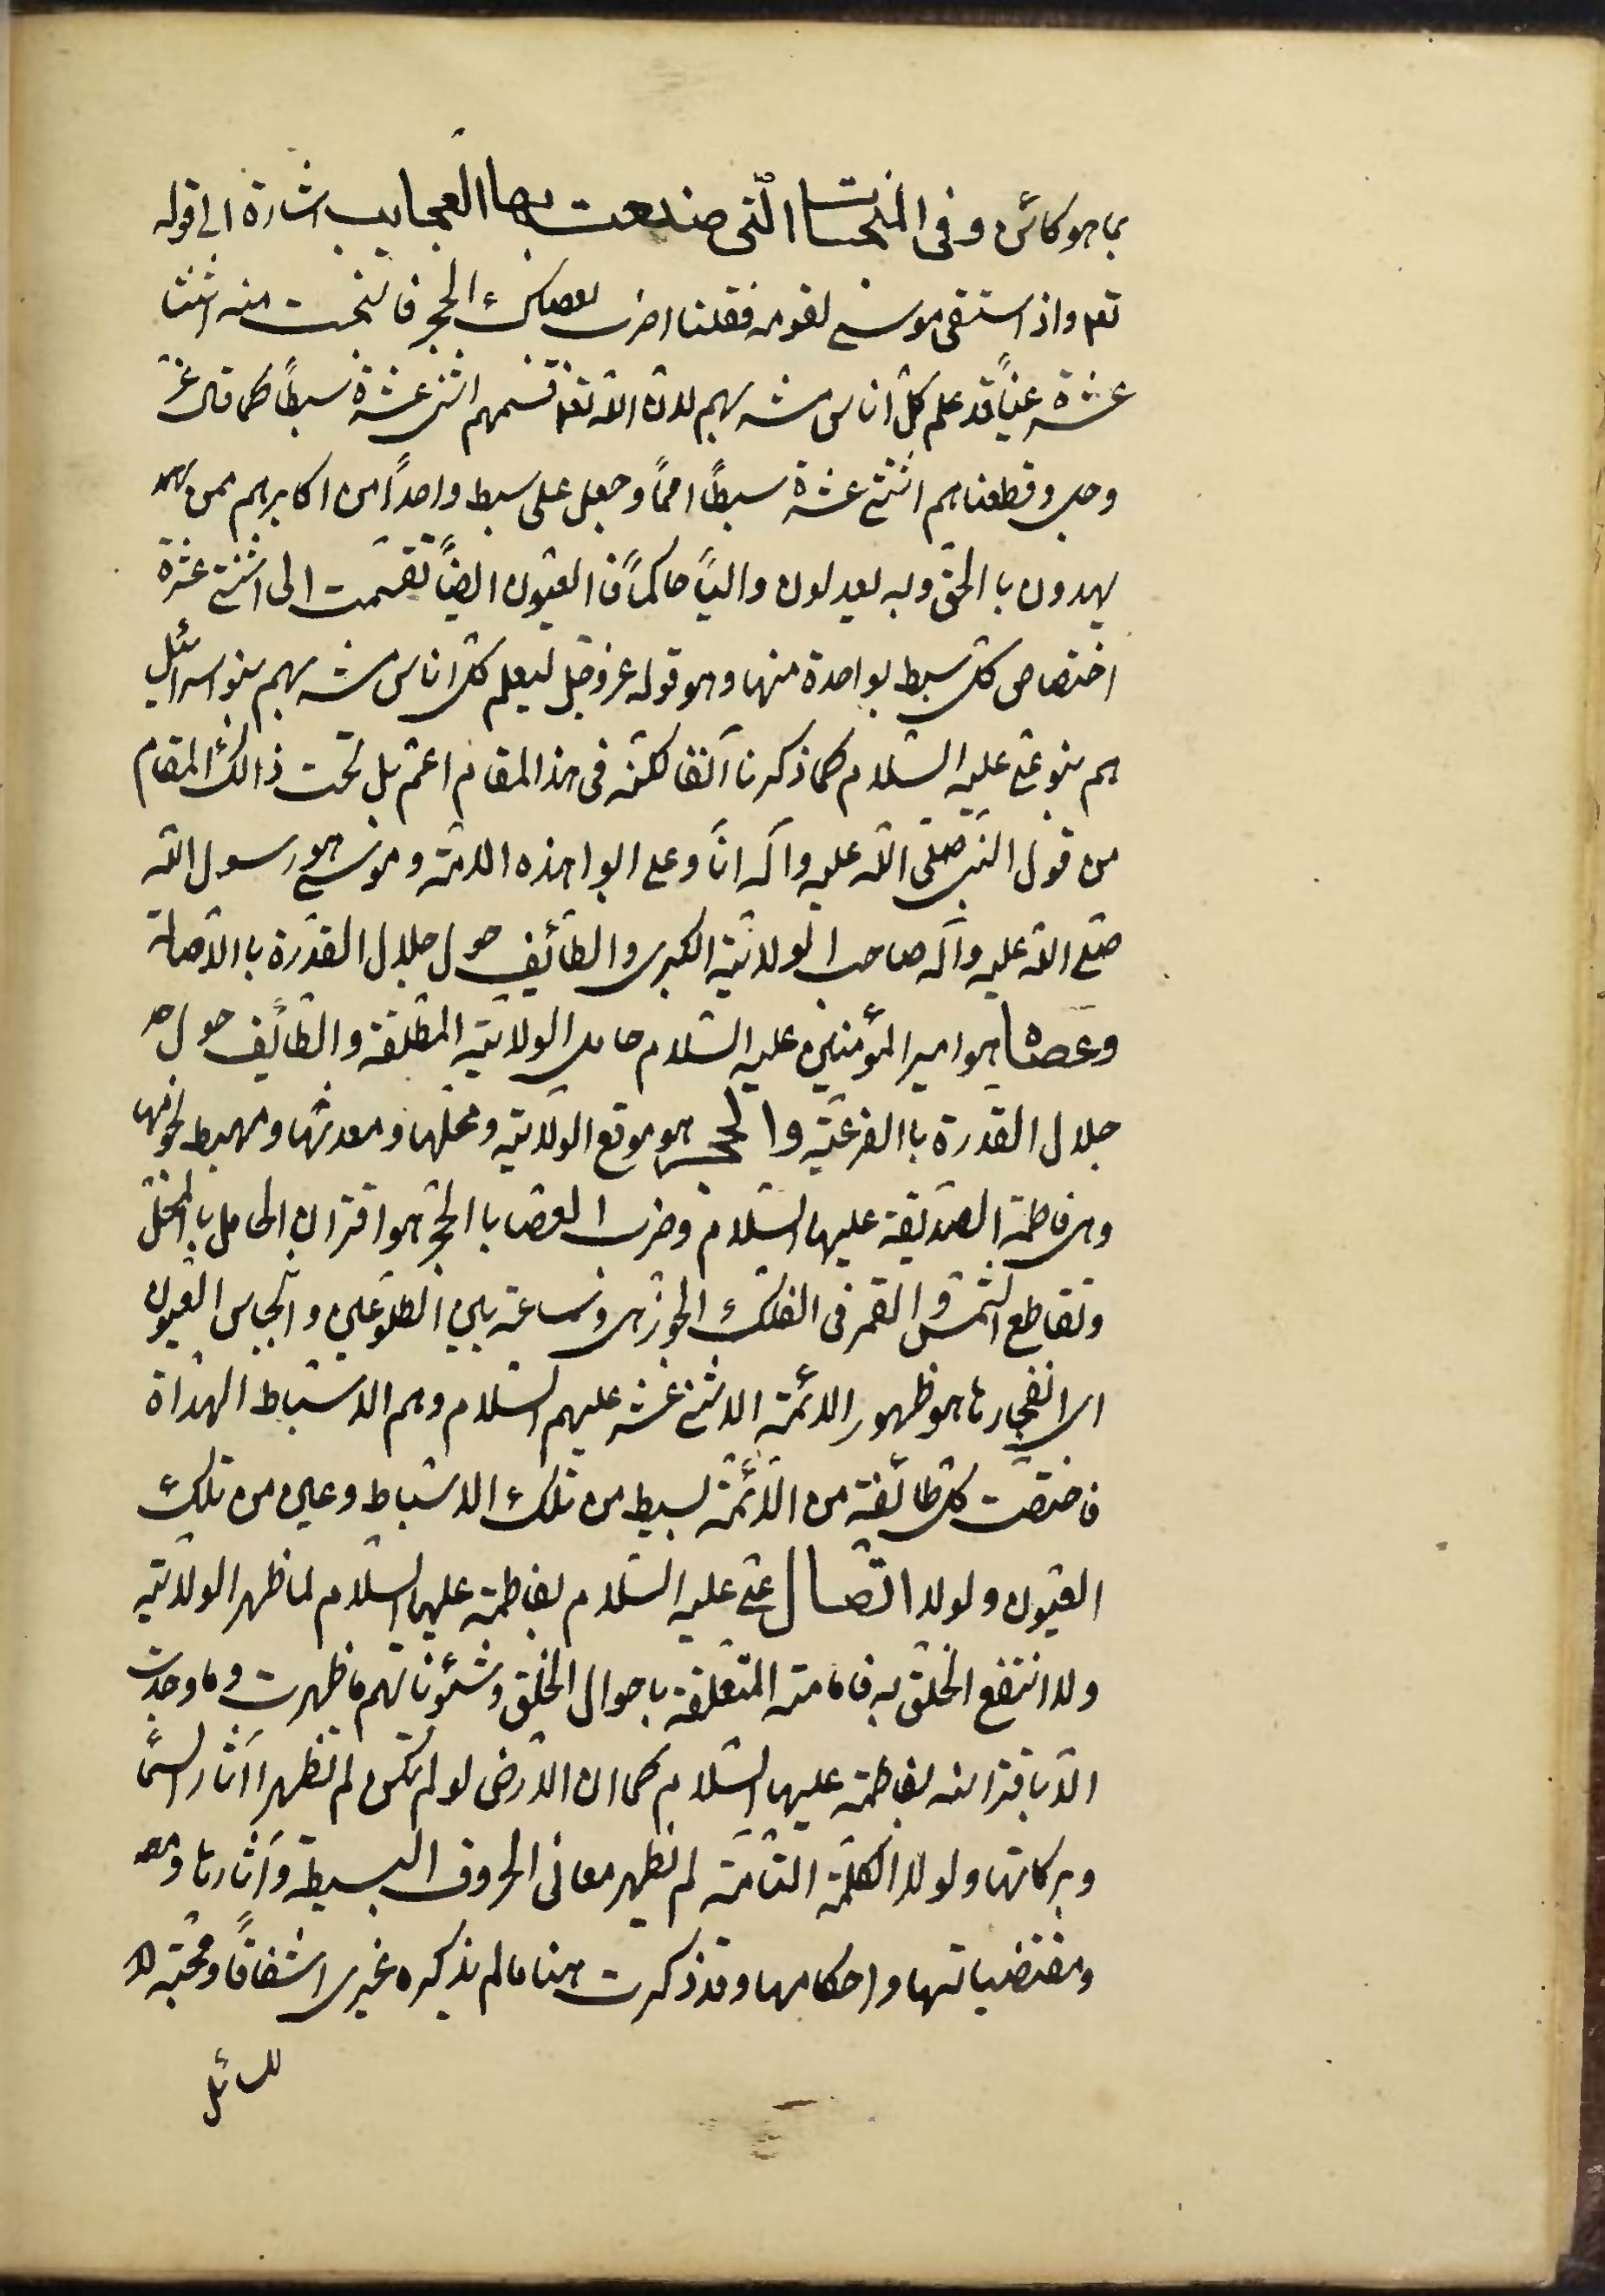 بما هو كائن وفي المنبجسات التي صنعت بها العجايب اشارة الى قوله
تعا واذ استقى موسى لقومه فقلنا اضرب بعصاك الحجر فانبجست منه اثنتا
عشرة عيناً قد علم كل اناس مشربهم لان الله تعا قسّمهم اثنى عشرة سبطاً كما قال عزّ
وجل وقطعناهم اثنتى عشرة سبطاً امماً وجعل على سبط واحداً من اكابرهم ممن
يهدون باالحق وبه يعدلون والياً حاكماً فا العيون ايضاً تقسّمت الى اثنتى عشرة
اختصاص كل سبط بواحدة منها وهو قوله عز وجل ليعلم كل اناس مشربهم بنو اسرائيل
هم بنو على عليه السّلام كما ذكرنا آنفا لكنّه فى هذا لمقام اعمّ بل تحت ذالك المقام
من قول النبى صلّى الله عليه وآله انا وعلى ابوا هذه الامّة وموسى هو رسول الله
صلى الله عليه وآله صاحب الولايّة الكبرى والطائف حول جلال القدرة باالاصالة
وعصاه هو امير المؤمنين عليه السّلام حامل الولايّة المطلقة والطائف حول
جلال القدرة باالفرعيّة والحجر هو موقع الولايّة ومحلّها ومعدنها ومهبط نجومها
وهى فاطمة الصدّيقة عليها السّلام وضرب العصا باالحجر هو اقتران الحامل باالمحلّ
وتقاطع الشّمس والقمر فى الفلك الجوزهر وساعة بين الطلوعين وانبجاس العيون
اى انفجارها هو ظهور الائمّة الاثنى عشر عليهم السّلام وهم الاسباط الهداة
فاختصّت كل طائفة من الائمّة بسبط من تلك الاسباط وعين من تلك
العيون ولولا اتّصال على عليه السّلام بفاطمة عليها السّلام لما ظهر الولايّة
ولا انتفع الخلق به فامامته المتعلّقة باحوال الخلق وشئوناتهم ما ظهرت وما وجدت
الّا باقترانه بفاطمة عليها السّلام كما ان الارض لو لم تكن لم تظهر اآثار السّما
وبركاتها ولولا الكلمة التامّة لم تظهر معانى الحروف البسيطة وآثارها
ومقتضياتها واحكامها وقد ذكرت هنا ما لم يذكره غيرى اشفاقاً ومحبّة
للسائل